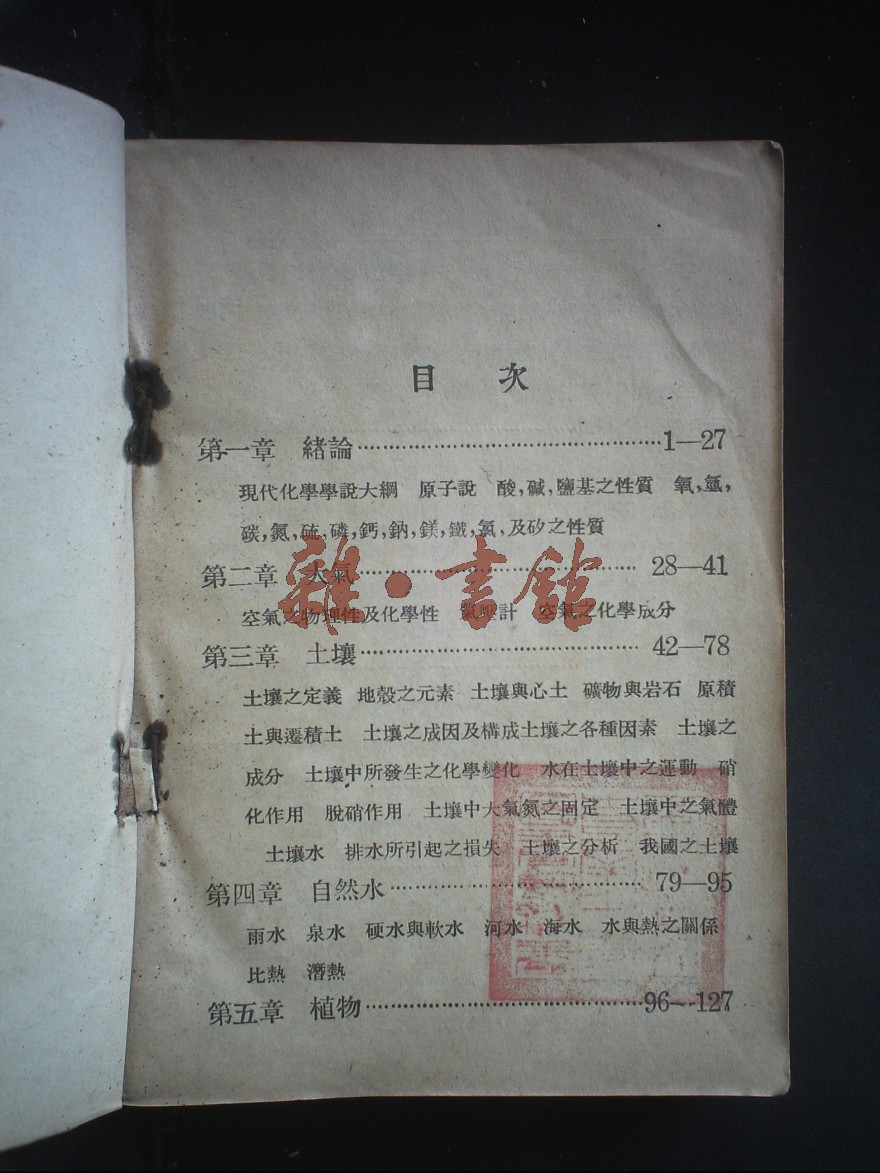 目次
第一章 緒論……………………………………1—27
現代化學學說大綱 原子說 酸,碱,鹽基之性質 氧,氫,
碳,氮,硫,磷,鈣,鈉,鎂,鐵,氯,及矽之性質
第二章 大氣………………………………28—41
空氣之物理性及化學性 氣壓計 空氣之化學成分
第三章 土壤………………………………42—78
土壤之定義 地殼之元素 土壤與心土 礦物與岩石 原積
土與遷積土 土壤之成因及構成土壤之各種因素 土壤之
成分 土壤中所發生之化學變化 水在土壤中之運動 硝
化作用 脫硝作用 土壤中大氣氮之固定 土壤中之氣體
土壤水 排水所引起之損失 土壤之分析 我國之土壤
第四章 自然水……………………………79—95
雨水 泉水 硬水與軟水 河水 海水 水與熱之關係
比熱 潛熱
第五章 植物………………………………96—127
雜·書館